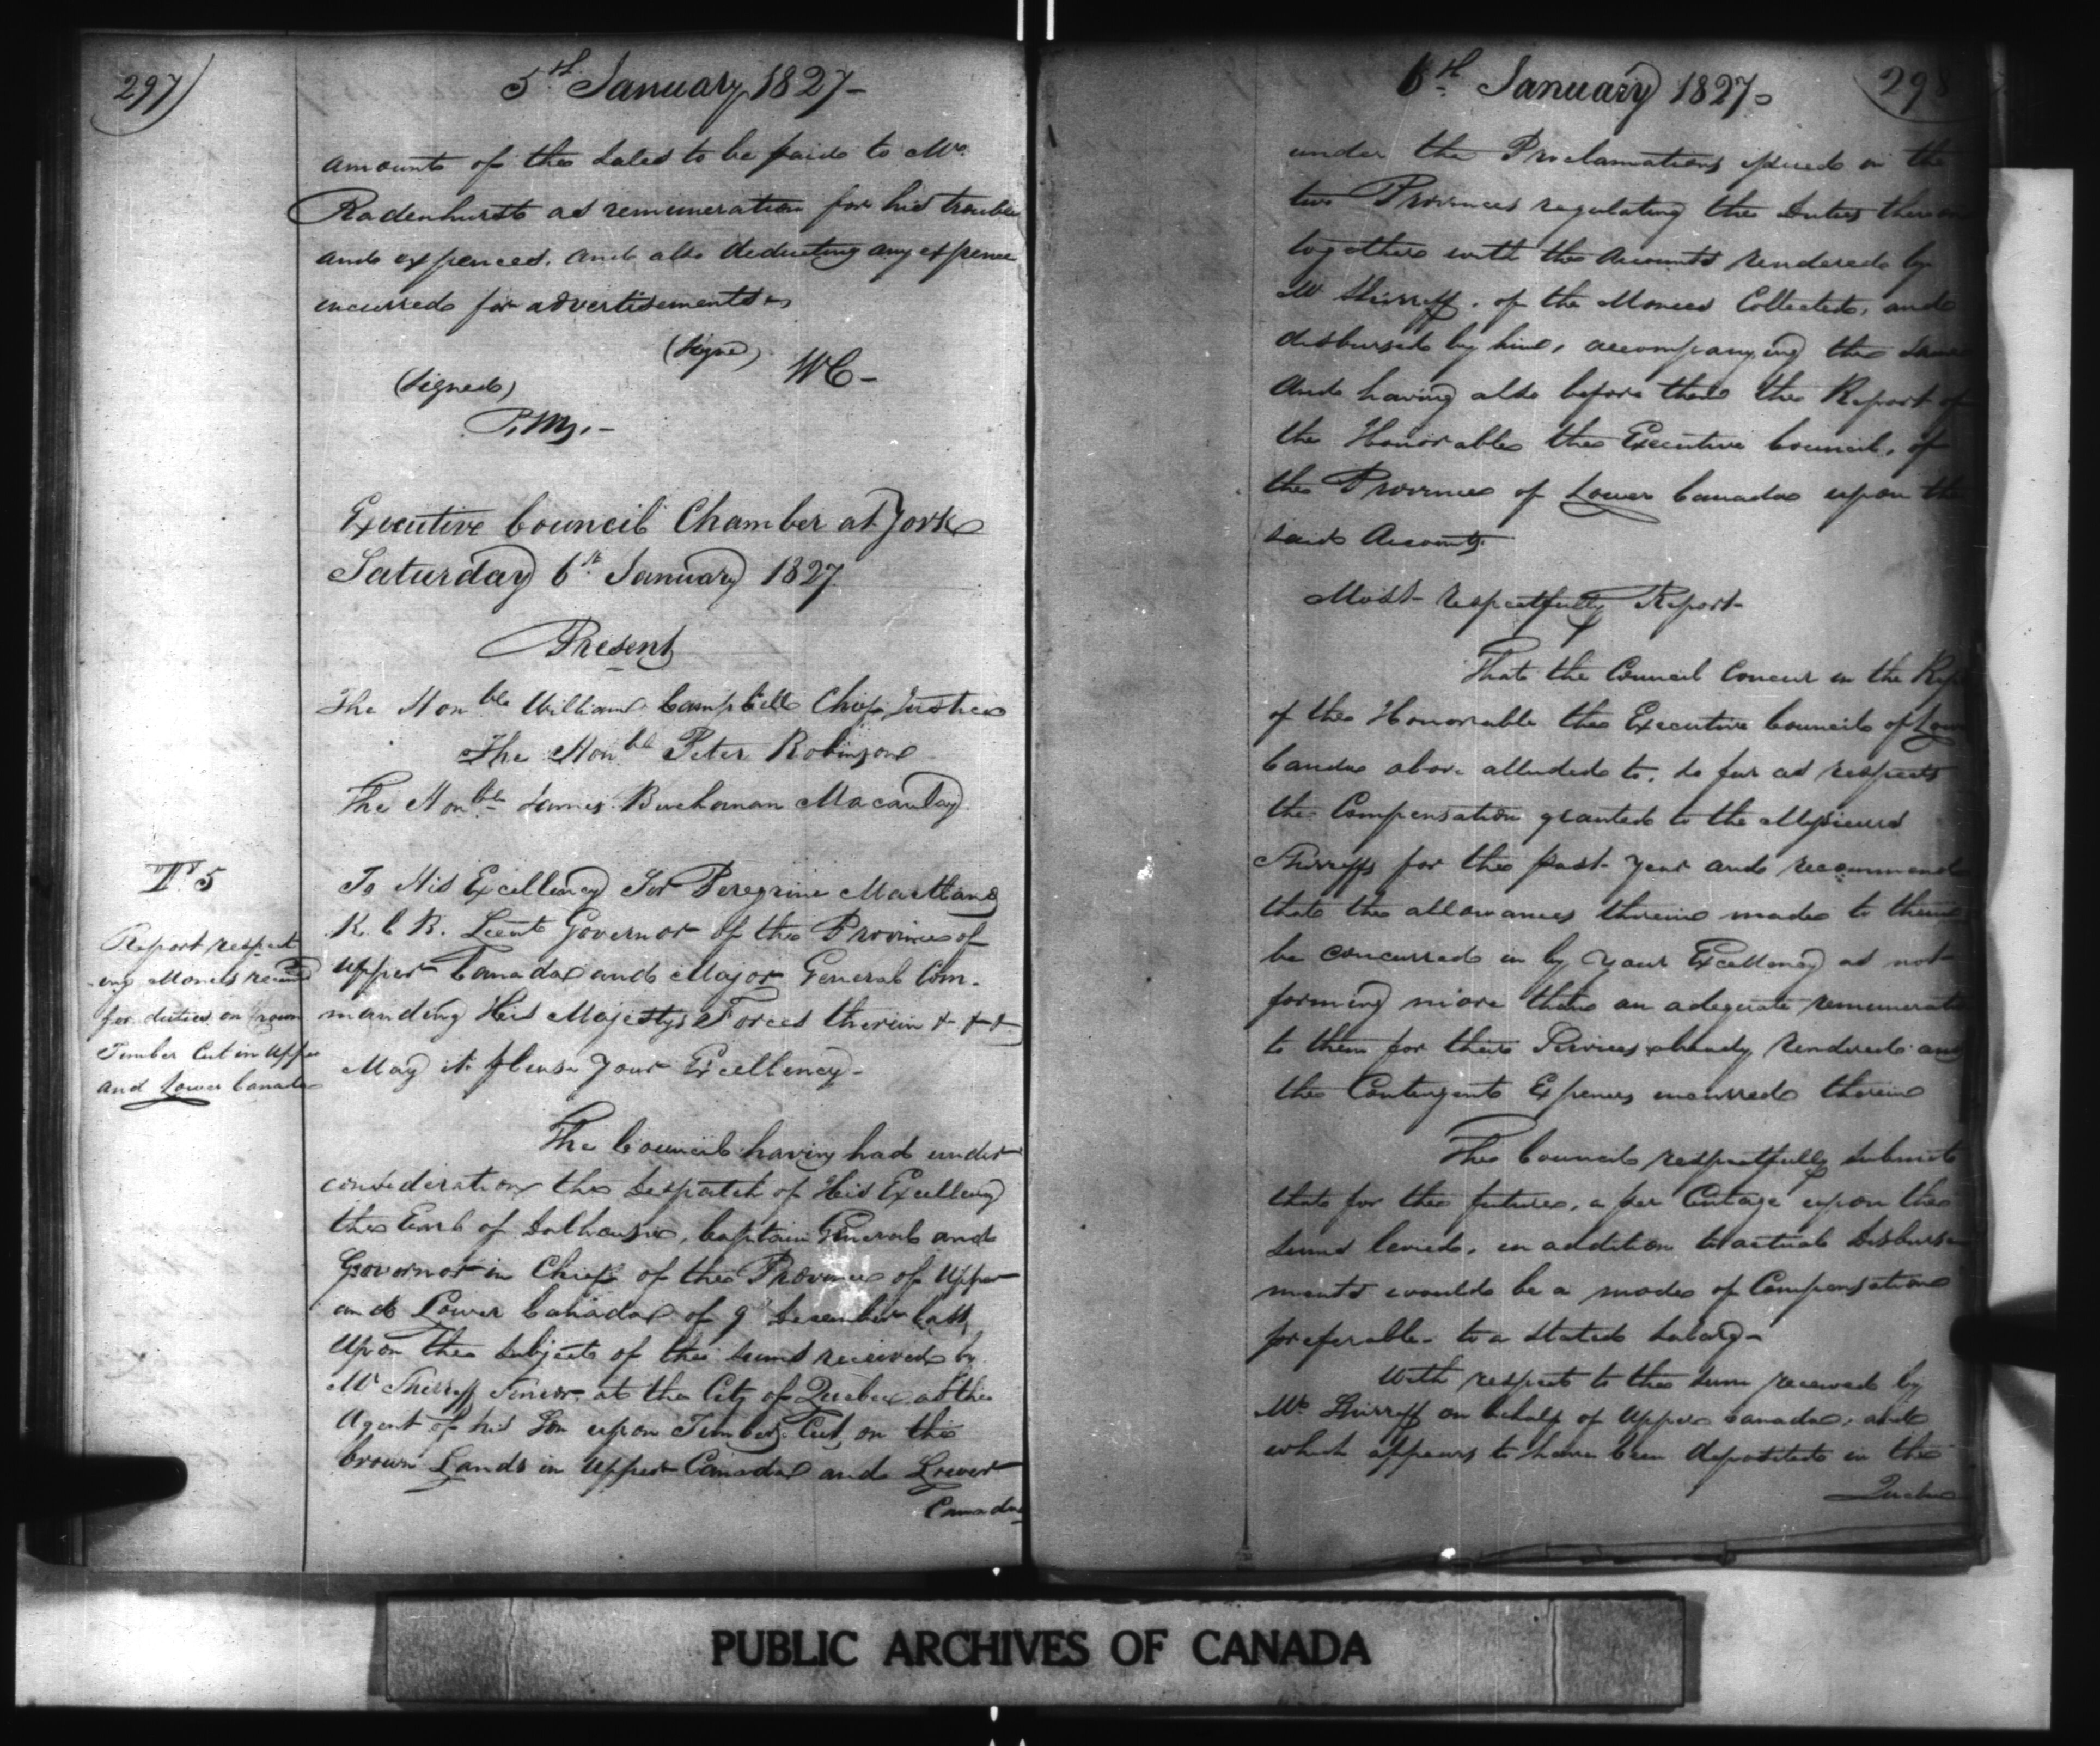 297)
5th January 1827-
amount of the Sales to be paid to Mr.
Radenhurst as remuneration for his trouble
and expences. and also deducting any expence
incurred for advertisements
(Signed) WC-
(Signed)
P.M.-
Executive Council Chamber at York
Saturday 6th January 1827
Present
The Honble William Campbell Chief Justice
The Honble Peter Robinson
The Honble James Buchanan Macaulay
No 5
Report respect
-ing Monies received
for duties on Crown
Timber Cut in Upper
and Lower Canada
To His Excellency Sir Peregrine Maitland
K. C. B. Lieut Governor of the Province of
Upper Canada and Major General Com-
manding His Majestys Forces therein & & &
May it please Your Excellency-
The Council having had under
consideration the despatch of His Excellency
the Earl of Dalhousie, Captain General and
Governor in Chief of the Province of Upper
and Lower Canada of 9th December last
Upon the subject of the sums received by
Mr Shirreff Senior at the City of Quebec as the
Agent of his Son upon Timber Cut on the
Crown Lands in Upper Canada and Lower
Canada
6th January 1827-
298
under the Proclamations issued in the
two Provinces regulating the duties thereon
together with the Accounts rendered by
Mr Shirreff. of the Monies Collected, and
disbursed by him, accompanying the same
And having also before them the Report of
the Honorable the Executive Council, of
the Province of Lower Canada upon the
said Accounts
Most respectfully Report-
That the Council Concur in the Rep
of the Honorable the Executive Council of Lower
Canada above alluded to, so far as respects
the Compensation granted to the Messieurs
Shirreffs for the past Year and recommend
that the allowances therein made to them
be concurred in by Your Excellency as not
forming more than an adequate remuneration
to them for their Services already rendered and
the Contingent Expences incurred therein
The Council respectfully submit
that for the future, a per Centage upon the
sums levied, in addition to actual disburse
ments would be a mode of Compensation
preferable to a stated Salary-
With respect to the sum received by
Mr Shirreff on behalf of Upper Canada, and
which appears to have been deposited in the
Quebec
PUBLIC ARCHIVES OF CANADA